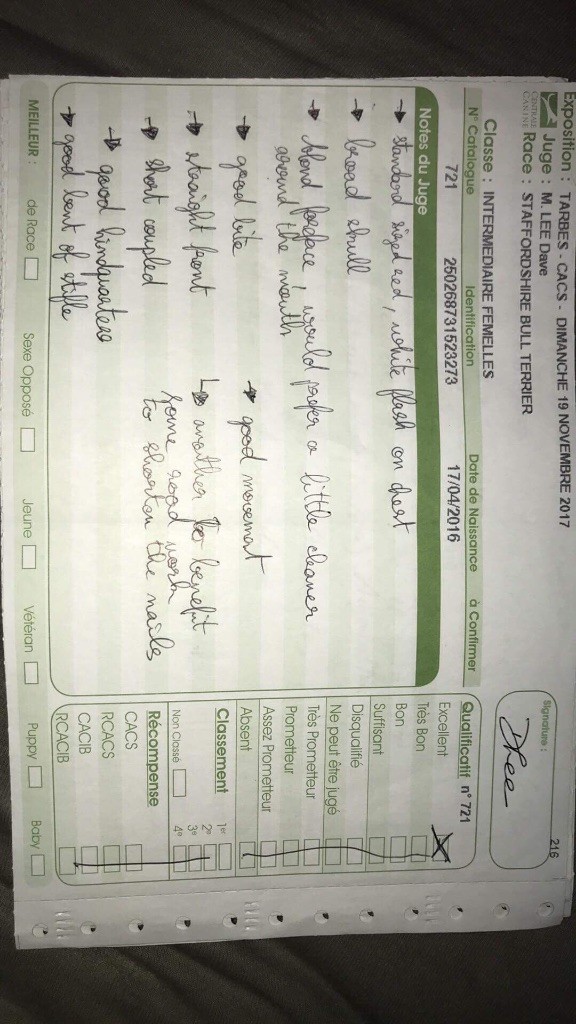 Exposition : TARBES - CACS - DIMANCHE 19 NOVEMBRE 2017
216
CENTRALE CANINE
Juge : M. LEE Dave
Race : STAFFORDSHIRE BULL TERRIER
Signature :
DLee
Classe : INTERMEDIAIRE FEMELLES
N° Catalogue
Identification
Date de Naissance
à Confirmer
721
250268731523273
17/04/2016
Notes du Juge
→ standard sized red, white flash on chest
→ broad skull
→ blond foreface, would prefer a little cleaner
around the mouth
→ good bite
→ straight front
→ short coupled
→ good hindquarters
→ good bent of stifle
→ good movement
↳ another to benefit
some road work
to shorten the nails
Qualificatif n° 721
Excellent
Très Bon
Bon
Suffisant
Disqualifié
Ne peut être jugé
Très Prometteur
Prometteur
Assez Prometteur
Absent
Classement
1er
2e
3e
4e
Non Classé
Récompense
CACS
RCACS
CACIB
RCACIB
MEILLEUR :
de Race
Sexe Opposé
Jeune
Vétéran
Puppy
Baby